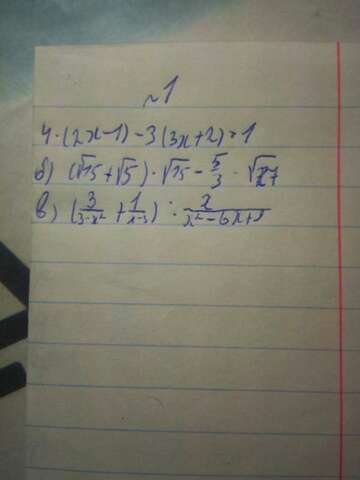 №1
4·(2x-1)-3(3x+2)=1
б) (√15+√5)·√15-5/3·√27
в) (3/(3-x²)+1/(x-3)):2/(x²-6x+9)